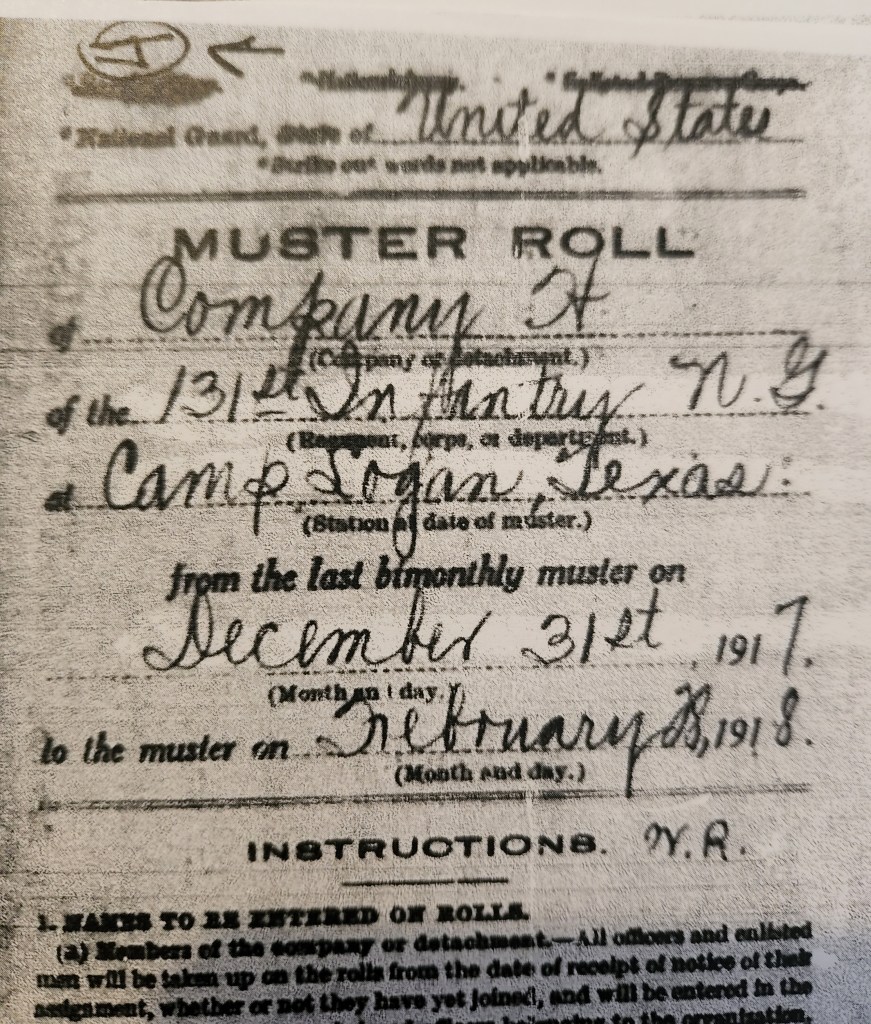 I
National Guard, State of United States
*Strike out words not applicable.
MUSTER ROLL
of Company H
(Company or detachment.)
of the 131st Infantry N.G.
(Regiment, corps, or department.)
at Camp Logan, Texas.
(Station at date of muster.)
from the last bimonthly muster on
December 31st, 1917.
(Month and day.)
to the muster on February 28, 1918.
(Month and day.)
INSTRUCTIONS. W.R.
1. NAMES TO BE ENTERED ON ROLLS.
(a) Members of the company or detachment.—All officers and enlisted
men will be taken up on the rolls from the date of receipt of notice of their
assignment, whether or not they have yet joined, and will be entered in the
belonging to the organization,